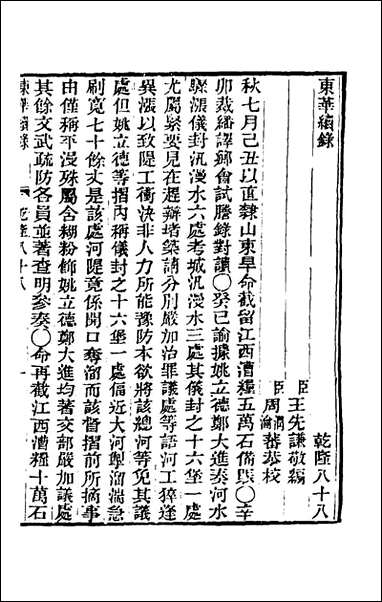 東華續錄
乾隆八十八
臣王先謙敬編
臣周潤蕃周瀹蕃恭校
秋七月己丑以直隸山東旱命截留江西漕糧五萬石備賑〇辛
卯裁繙譯鄉會試謄錄對讀〇癸巳諭據姚立德鄭大進奏河水
驟漲儀封汛漫水六處考城汛漫水三處其儀封之十六堡一處
尤屬緊要見在趕辦堵築請分別嚴加治罪議處等語河工猝逢
異漲以致隄工衝決非人力所能豫防本欲將該總河等免其議
處但姚立德等摺內稱儀封之十六堡一處偪近大河與溜湍急
刷寬七十餘丈是該處河隄竟係開口奪溜而該督摺前所摘事
由僅稱平漫殊屬含糊粉飾姚立德鄭大進均著交部嚴加議處
其餘文武疏防各員並著查明參奏〇命再截江西漕糧十萬石
東華續錄
乾隆八十八
一